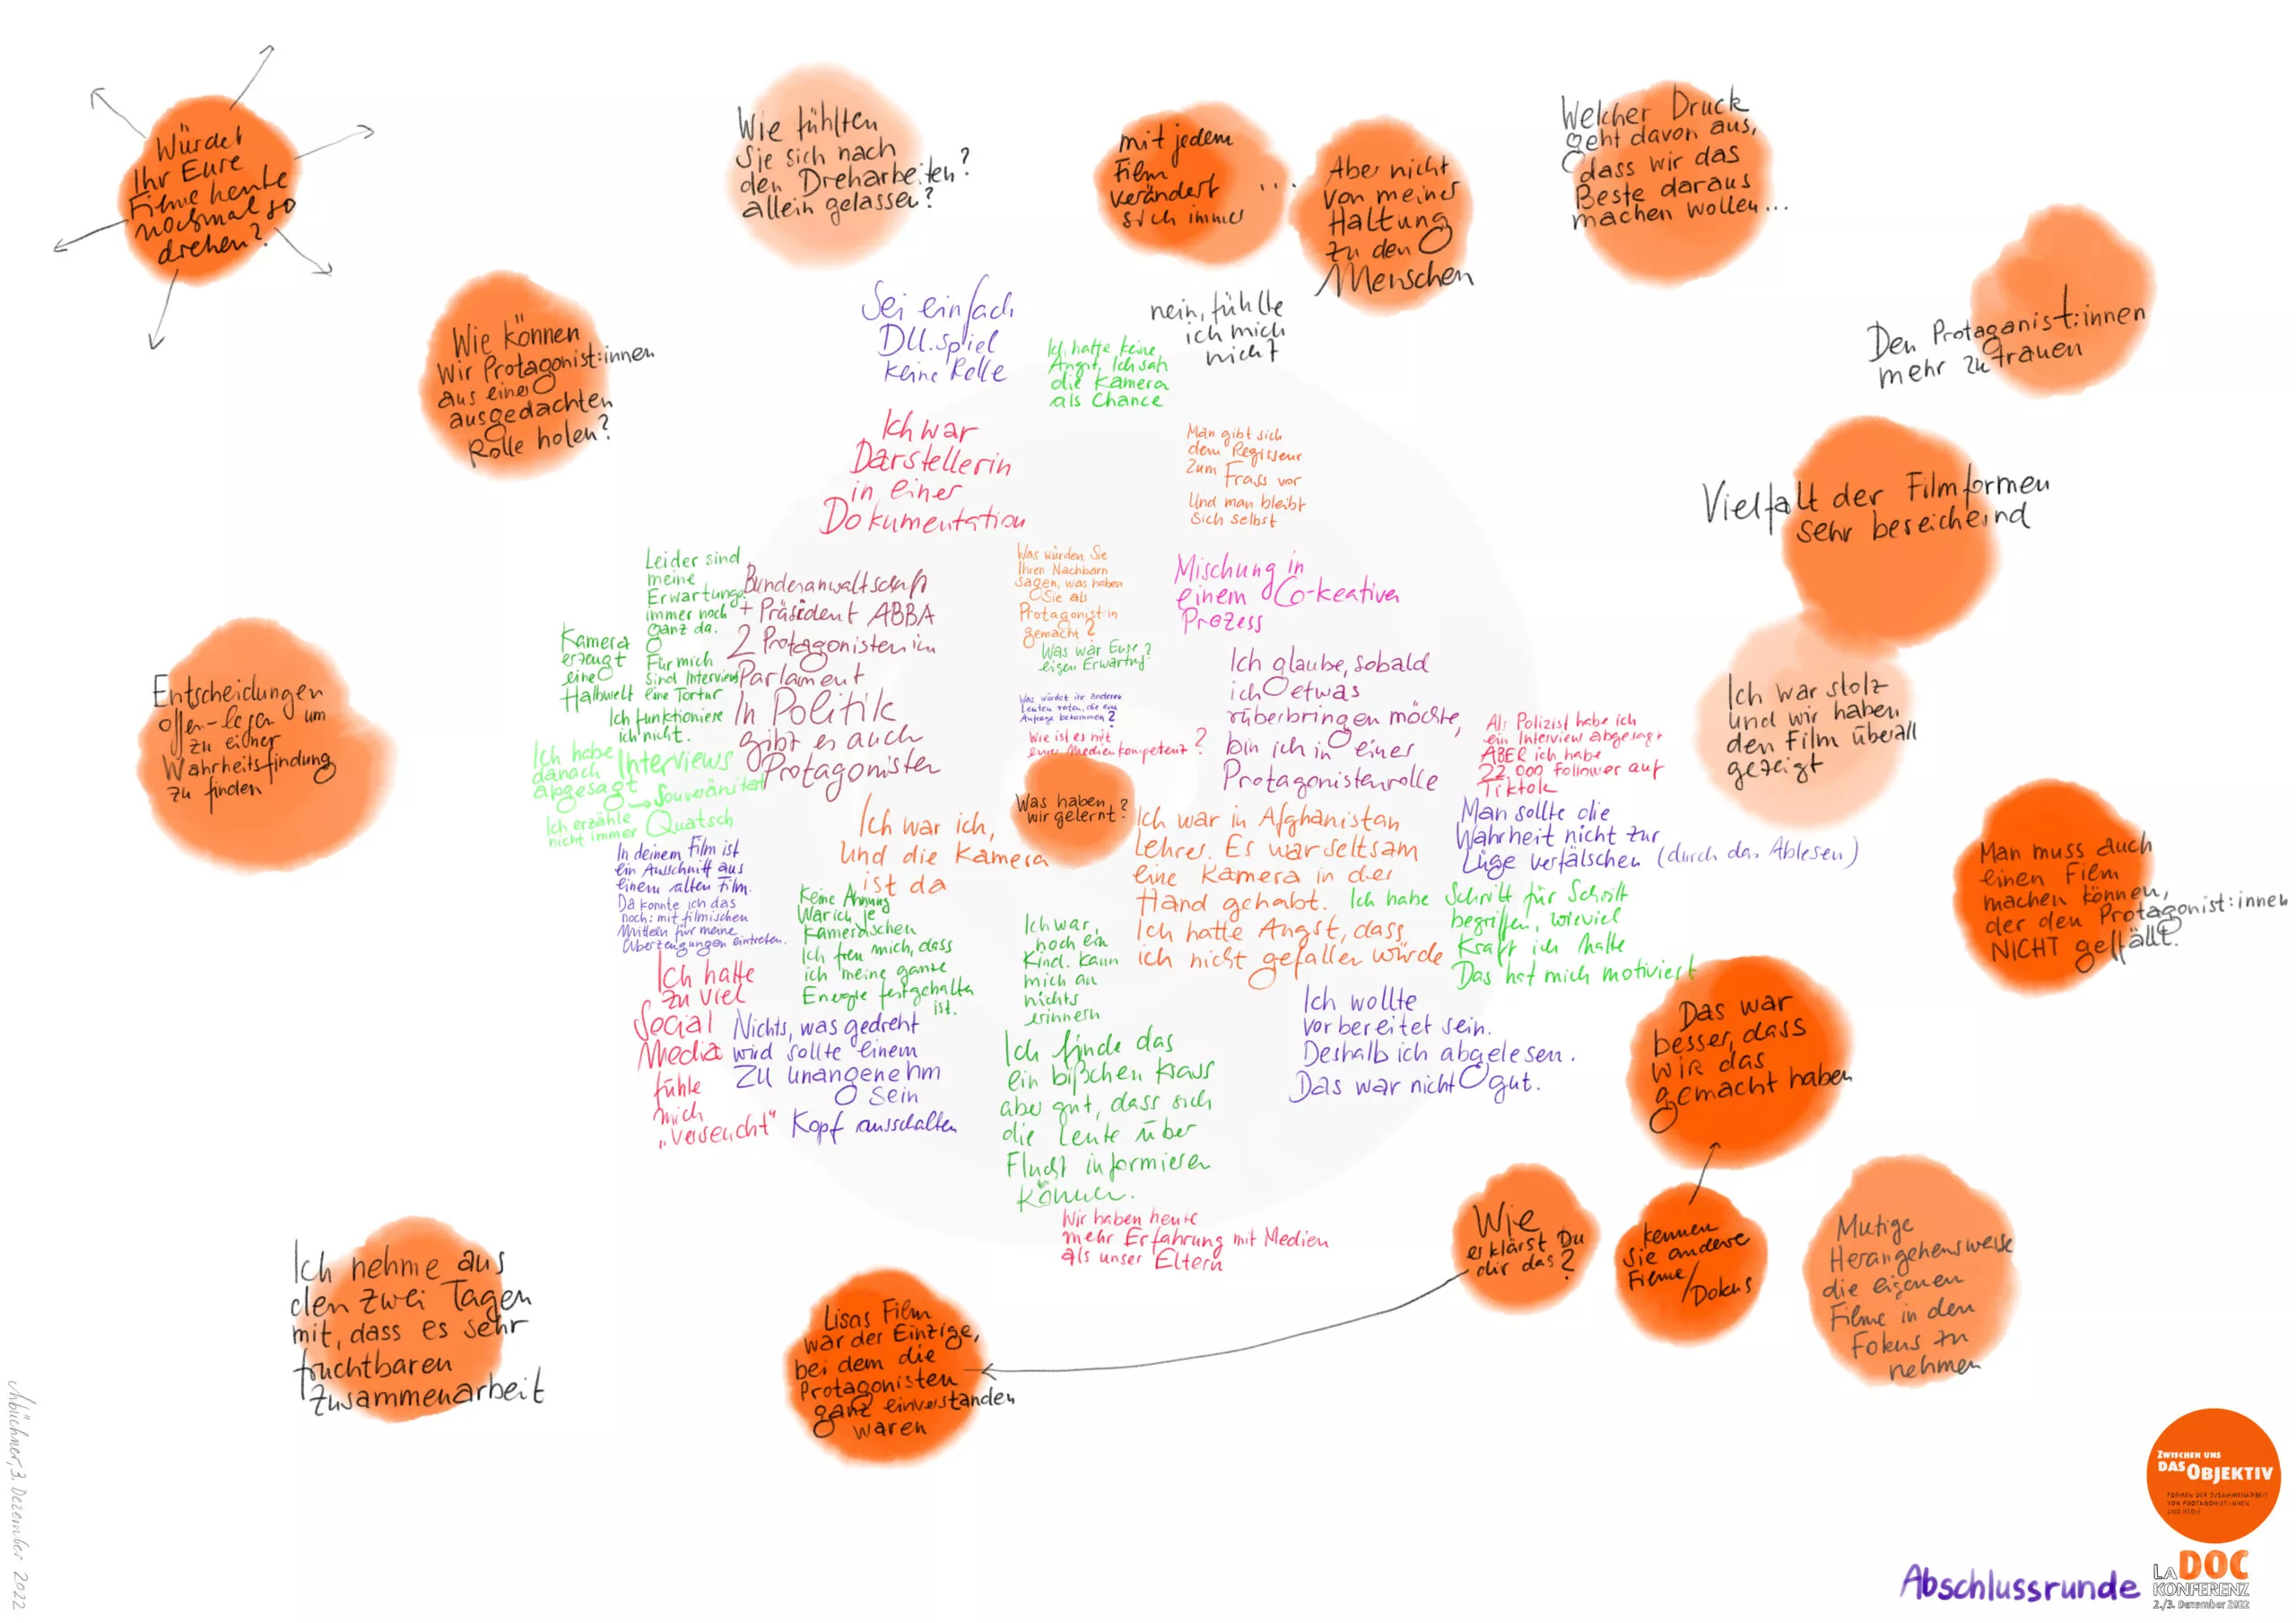 Würdet
Ihr Eure
Filme heute
nochmal so
drehen?
Wie fühlten
Sie sich nach
den Dreharbeiten?
allein gelassen?
mit jedem
Film
verändert
sich immer
...
Aber nicht
von meiner
Haltung
zu den
Menschen
Welcher Druck
geht davon aus,
dass wir das
Beste daraus
machen wollen...
Den Protaganist:innen
mehr zutrauen
Wie können
wir Protagonist:innen
aus einer
ausgedachten
Rolle holen?
Sei einfach
DU. spiel
keine Rolle
Ich hatte keine
Angst. Ich sah
die Kamera
als Chance
nein, fühlte
ich mich
nicht
Ich war
Darstellerin
in einer
Dokumentation
Man gibt sich
dem Regisseur
zum Frass vor
Und man bleibt
sich selbst
Vielfalt der Filmformen
sehr bereichernd
Leider sind
meine
Erwartunge
immer noch
ganz da.
Für mich
sind Interviews
eine Tortur
Ich funktioniere
ich nicht.
Kamera
erzeugt
eine
Halbwelt
Bundesanwaltschaft
+ Präsident ABBA
2 Protagonisten im
Parlament
In Politik
gibt es auch
Protagonisten
Was würden Sie
Ihren Nachbarn
sagen, was haben
Sie als
Protagonist:in
gemacht?
Was war Eure?
eigen Erwartung
Was würdet ihr anderen
Leuten raten, die eine
Anfrage bekommen?
Wie ist es mit
eurer Medienkompetenz?
Was haben
wir gelernt?
Mischung in
einem Co-keativen
Prozess
Ich glaube, sobald
ich etwas
rüberbringen möchte,
bin ich in einer
Protagonistenrolle
Als Polizist habe ich
ein Interview abgesagt
ABER ich habe
22.000 follower auf
Tiktok
Ich war stolz
und wir haben
den Film überall
gezeigt
Entscheidungen
offen-legen um
zu einer
Wahrheitsfindung
zu finden
Ich habe
danach Interviews
abgesagt
→ Souveränität
Ich erzähle
nicht immer Quatsch
In deinem Film ist
ein Ausschnitt aus
einem alten Film.
Da konnte ich das
noch: mit filmischen
Mitteln für meine
Überzeugungen eintreten.
Ich war ich,
und die Kamera
ist da
Keine Ahnung
War ich je
kamerascheu
Ich freu mich, dass
ich meine ganze
Energie festgehalten
ist.
Ich war in Afghanistan
Lehrer. Es war seltsam
eine Kamera in der
Hand gehabt.
Ich hatte Angst, dass
ich nicht gefallen würde
Man sollte die
Wahrheit nicht zur
Lüge verfälschen (durch das Ablesen)
Ich habe Schritt für Schritt
begriffen, wieviel
Kraft ich hatte
Das hat mich motiviert
Man muss auch
einen Film
machen können,
der den Protagonist:innen
NICHT gefällt.
Ich hatte
zu viel
Social
Media
fühle
mich
„verseucht“
Nichts, was gedreht
wird sollte einem
zu unangenehm
sein
Kopf ausschalten
Ich war
noch ein
Kind. Kann
mich an
nichts
erinnern
Ich finde das
ein bißchen krass
aber gut, dass sich
die Leute über
Flucht informieren
können.
Ich wollte
vorbereitet sein.
Deshalb ich abgelesen.
Das war nicht gut.
Wir haben heute
mehr Erfahrung mit Medien
als unser Eltern
Das war
besser, dass
wir das
gemacht haben
Wie
erklärst Du
dir das?
kennen
Sie andere
Filme/
Dokus
Mutige
Herangehensweise
die eigenen
Filme in den
Fokus zu
nehmen
Ich nehme aus
den zwei Tagen
mit, dass es sehr
fruchtbaren
Zusammenarbeit
Lisas Film
war der Einzige,
bei dem die
Protagonisten
ganz einverstanden
waren
ZWISCHEN UNS
DAS OBJEKTIV
FORMEN DER ZUSAMMENARBEIT
VON PROTAGONIST:INNEN
UND REGIE
Abschlussrunde
LADOC
KONFERENZ
2./3. Dezember 2022
büchner, 3. Dezember 2022